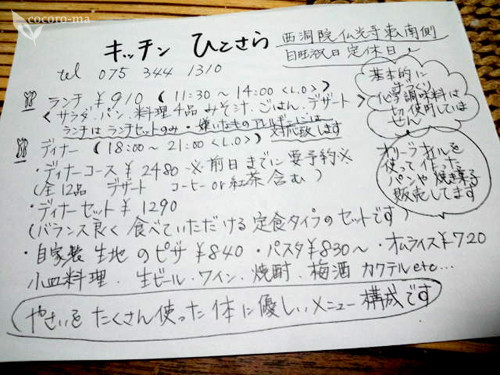 cocoro-ma
キッチン ひとさら
西洞院仏光寺東南側
日曜祝日定休日
tel 075 344 1310
基本的に
化学調味料は
使用していません
ランチ ¥910 (11:30~14:00 <L.O>)
<サラダ・パン・料理4品 みそ汁・ごはん・デザート>
ランチはランチセットのみ・嫌いなものアレルギーには対応致します
ディナー (18:00~21:00 <L.O>)
・ディナーコース ¥2480~ ※前日までに要予約※
(全12品 デザート コーヒー or 紅茶含む)
オリーブオイルを
使って作った
パンや焼き菓子
販売してます
・ディナーセット ¥1290
(バランス良く食べていただける定食タイプのセットです)
・自家製生地のピザ ¥840 ・パスタ ¥830~ ・オムライス ¥720
小皿料理・生ビール・ワイン・焼酎・梅酒 カクテル etc...
やさいをたくさん使った体に優しいメニュー構成です